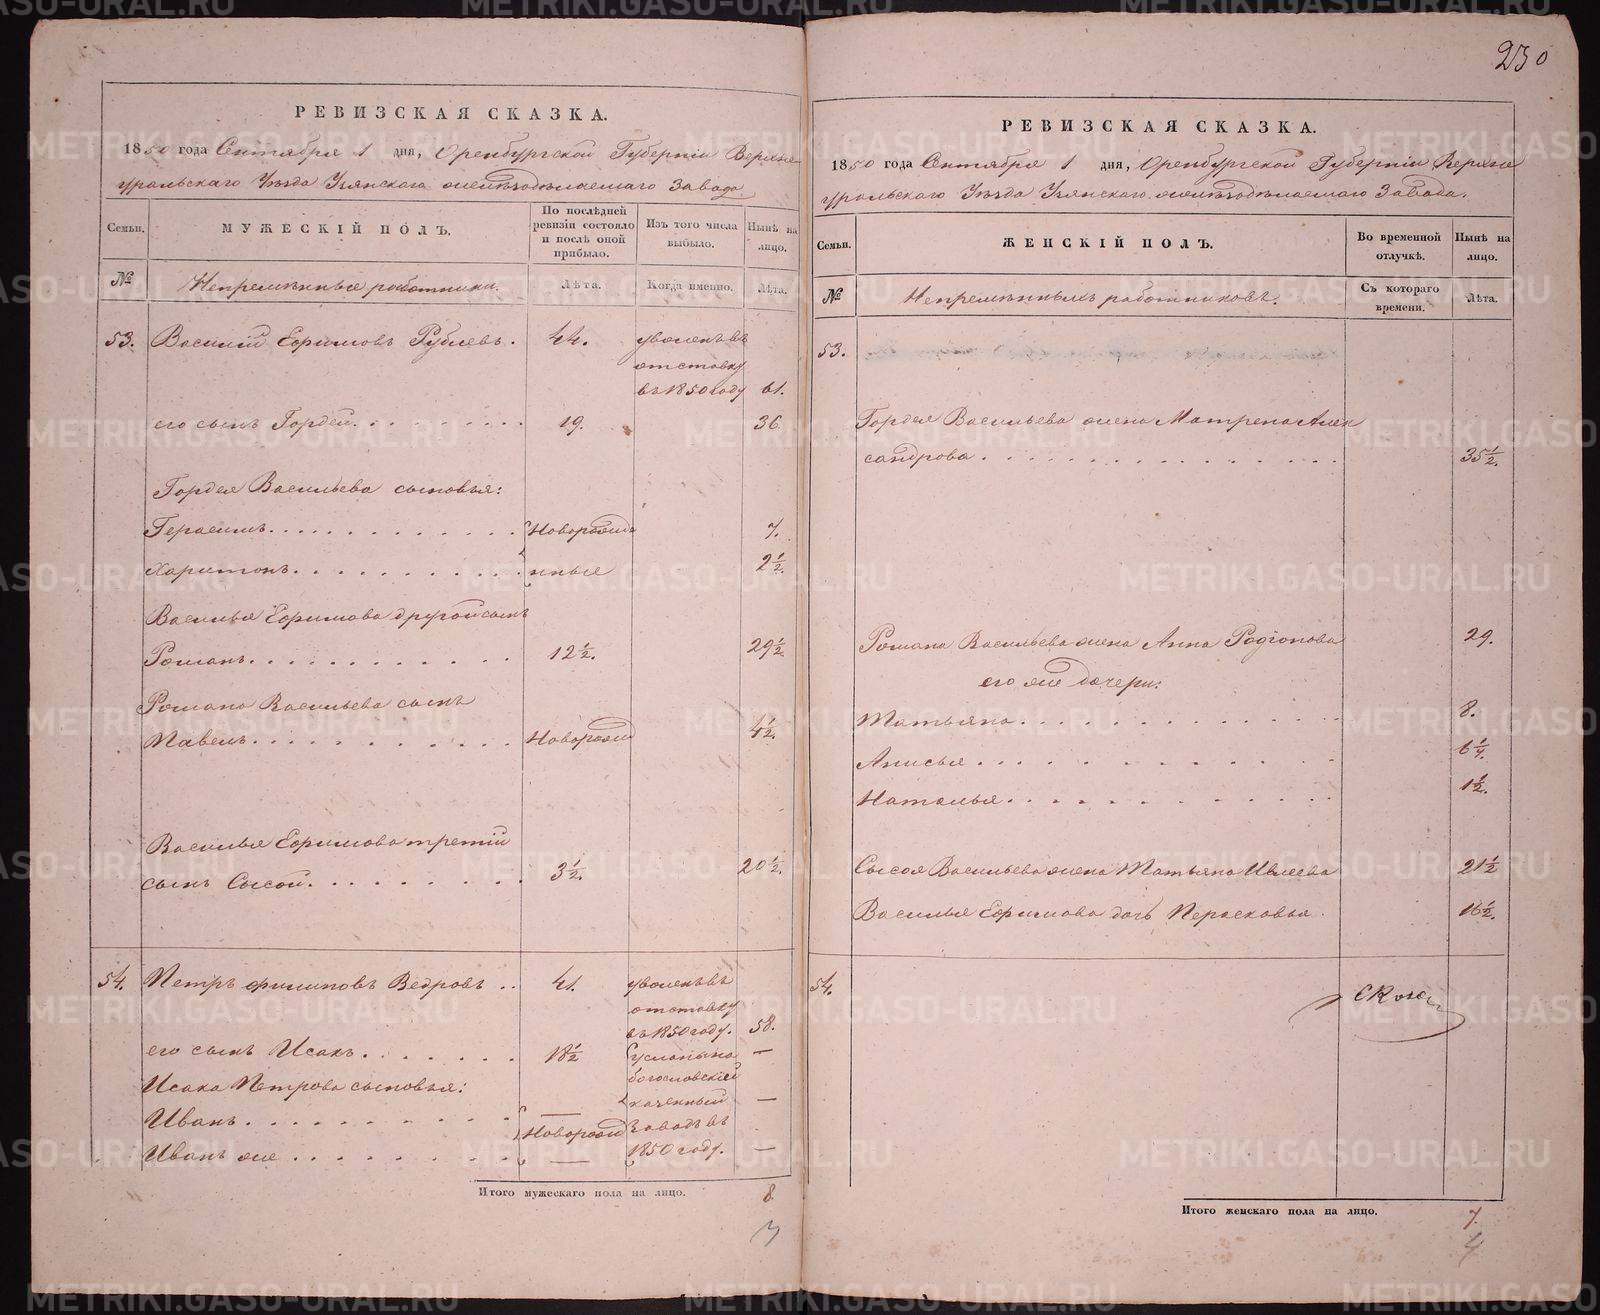 230
РЕВИЗСКАЯ СКАЗКА.
1850 года Сентября 1 дня, Оренбургской Губерніи Верхне
уральскаго Уѣзда Узянскаго желѣзодѣлаемаго Завода
Семьи.
МУЖЕСКІЙ ПОЛЪ.
По послѣдней ревизіи состояло и послѣ оной прибыло.
Изъ того числа выбыло.
Нынѣ на лицо.
№
Непремѣнные работники.
Лѣта.
Когда именно.
Лѣта.
53. Василій Ефимовъ Рублевъ. 44. уволенъ въ
отставку
въ 1850 году 61.
его сынъ Гордей 19. 36
Гордея Васильева сыновья:
Герасимъ Новорожде 7.
Харитонъ нные 2 1/2.
Василья Ефимова другой сынъ
Романъ 12 1/2. 29 1/2
Романа Васильева сынъ
Павелъ Новорожд 4 1/2.
Василья Ефимова третій
сынъ Сысой 3 1/2. 20 1/2.
54. Петръ Филиповъ Ведровъ 41. уволенъ въ
отставку
въ 1850 году. 58.
его сынъ Исакъ 18 1/2 усланы на —
Исака Петрова сыновья: богословскій
казенный —
Иванъ — заводъ въ
Новорожд
Иванъ же — 1850 году. —
Итого мужескаго пола на лицо. 8
РЕВИЗСКАЯ СКАЗКА.
1850 года Сентября 1 дня, Оренбургской Губерніи Верхне
уральскаго Уѣзда Узянскаго желѣзодѣлаемаго Завода.
Семьи.
ЖЕНСКІЙ ПОЛЪ.
Во временной отлучкѣ.
Нынѣ на лицо.
№
Непремѣнныхъ работниковъ.
Съ котораго времени.
Лѣта.
53.
Гордея Васильева жена Матрена Алек
сандрова 35 1/2.
Романа Васильева жена Анна Родіонова 29.
его же дочери:
Татьяна 8.
Анисья 6 1/4.
Наталья 1 1/2.
Сысоя Васильева жена Татьяна Ивлеева 21 1/2
Василья Ефимова дочь Перасковья 16 1/2.
54.
Итого женскаго пола на лицо. 7.
4
METRIKI.GASO-URAL.RU